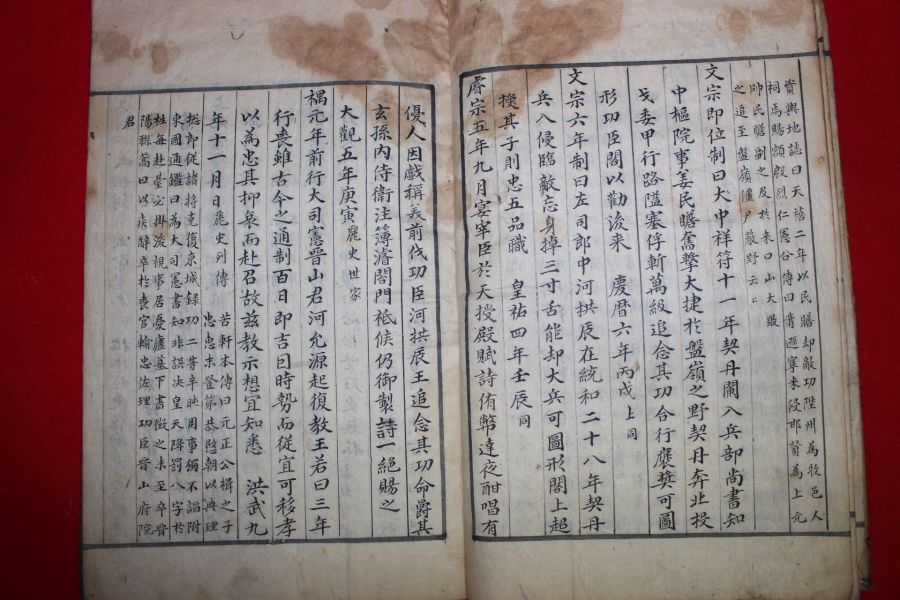 資輿地誌曰天禧二年以民瞻却敵功陞州為牧邑人
祠焉賜額殷烈仁憲公傳曰昔遜寧来侵邯賛為上元
帥民瞻副之及於来口山大敗
之追至盤嶺僵尸蔽野云云
文宗即位制曰大中祥符十一年契丹闌入兵部尚書知
中樞院事姜民瞻奮擊大捷於盤嶺之野契丹奔北投
戈委甲行路隘塞俘斬萬級追念其功合行褒奬可圖
形功臣閣以勸後来 慶曆六年丙戌上同
文宗六年制曰左司郎中河拱辰在統和二十八年契丹
兵入侵臨敵忘身掉三寸舌能却大兵可圖形閣上超
授其子則忠五品職 皇祐四年壬辰同
睿宗五年九月宴宰臣於天授殿賦詩侑幣達夜酣唱有
優人因戲稱美前代功臣河拱辰王追念其功命爵其
玄孫內侍衛注簿濬閤門祗候仍御製詩一絕賜之
大觀五年庚寅麗史世家
禑元年前行大司憲晋山君河允源起復教王若曰三年
行喪雖古今之通制百日即吉因時勢而從宜可移孝
以為忠其抑哀而赴召故玆教示想宜知悉 洪武九
年十一月日麗史列傳 苦軒本傳曰元正公楫之子
忠忠末登第恭愍朝以典理
摠郎從諸将克復京城錄功二等辛旽用事獨不謟附
東國通鑑曰為大司憲書知非誤決皇天降罰八字於
板每赴臺必掛後視事居憂廬墓下書徵之未至卒晋
陽誌曰以疾辭卒於喪官輸忠佐理功臣晋山府院
君